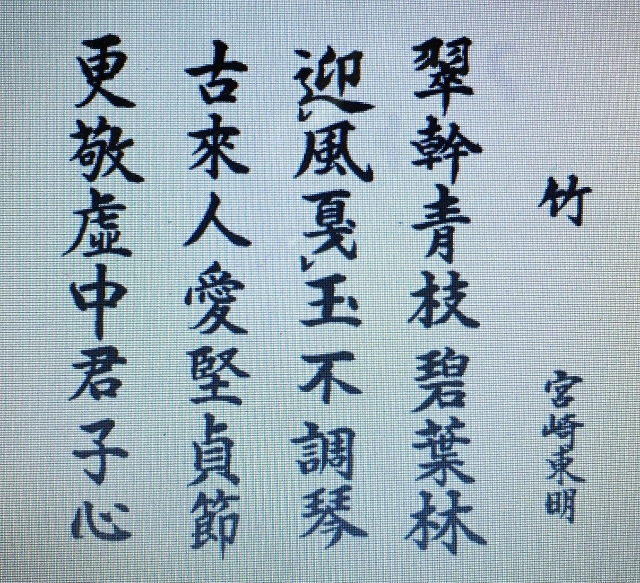 竹
宮崎東明
翠幹青枝碧葉林
迎風戞玉不調琴
古來人愛堅貞節
更敬虛中君子心